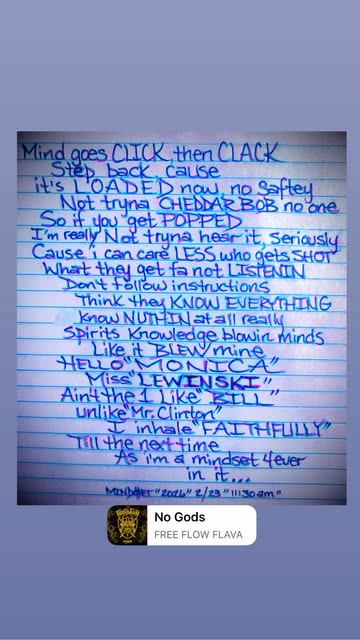 Mind goes CLICK, then CLACK
Step back, cause
it's LOADED now, no Saftey
Not tryna CHEDDAR BOB no one
So if you get POPPED
I'm really Not tryna hear it, seriously
Cause i can care LESS who gets SHOT
What they get fa not LISTENIN
Don't follow instructions
Think they KNOW EVERYTHING
Know NUTHIN at all really
Spirits Knowledge blowin minds
Like it BLEW mine
"HELLO" MONICA"
Miss "LEWINSKI"
Ain't the 1 Like "BILL"
unlike Mr. Clinton"
I inhale "FAITHFULLY"
Till the next time
As i'm a mindset 4ever
in it...
"2026" 2/23 "11:30am"
No Gods
FREE FLOW FLAVA